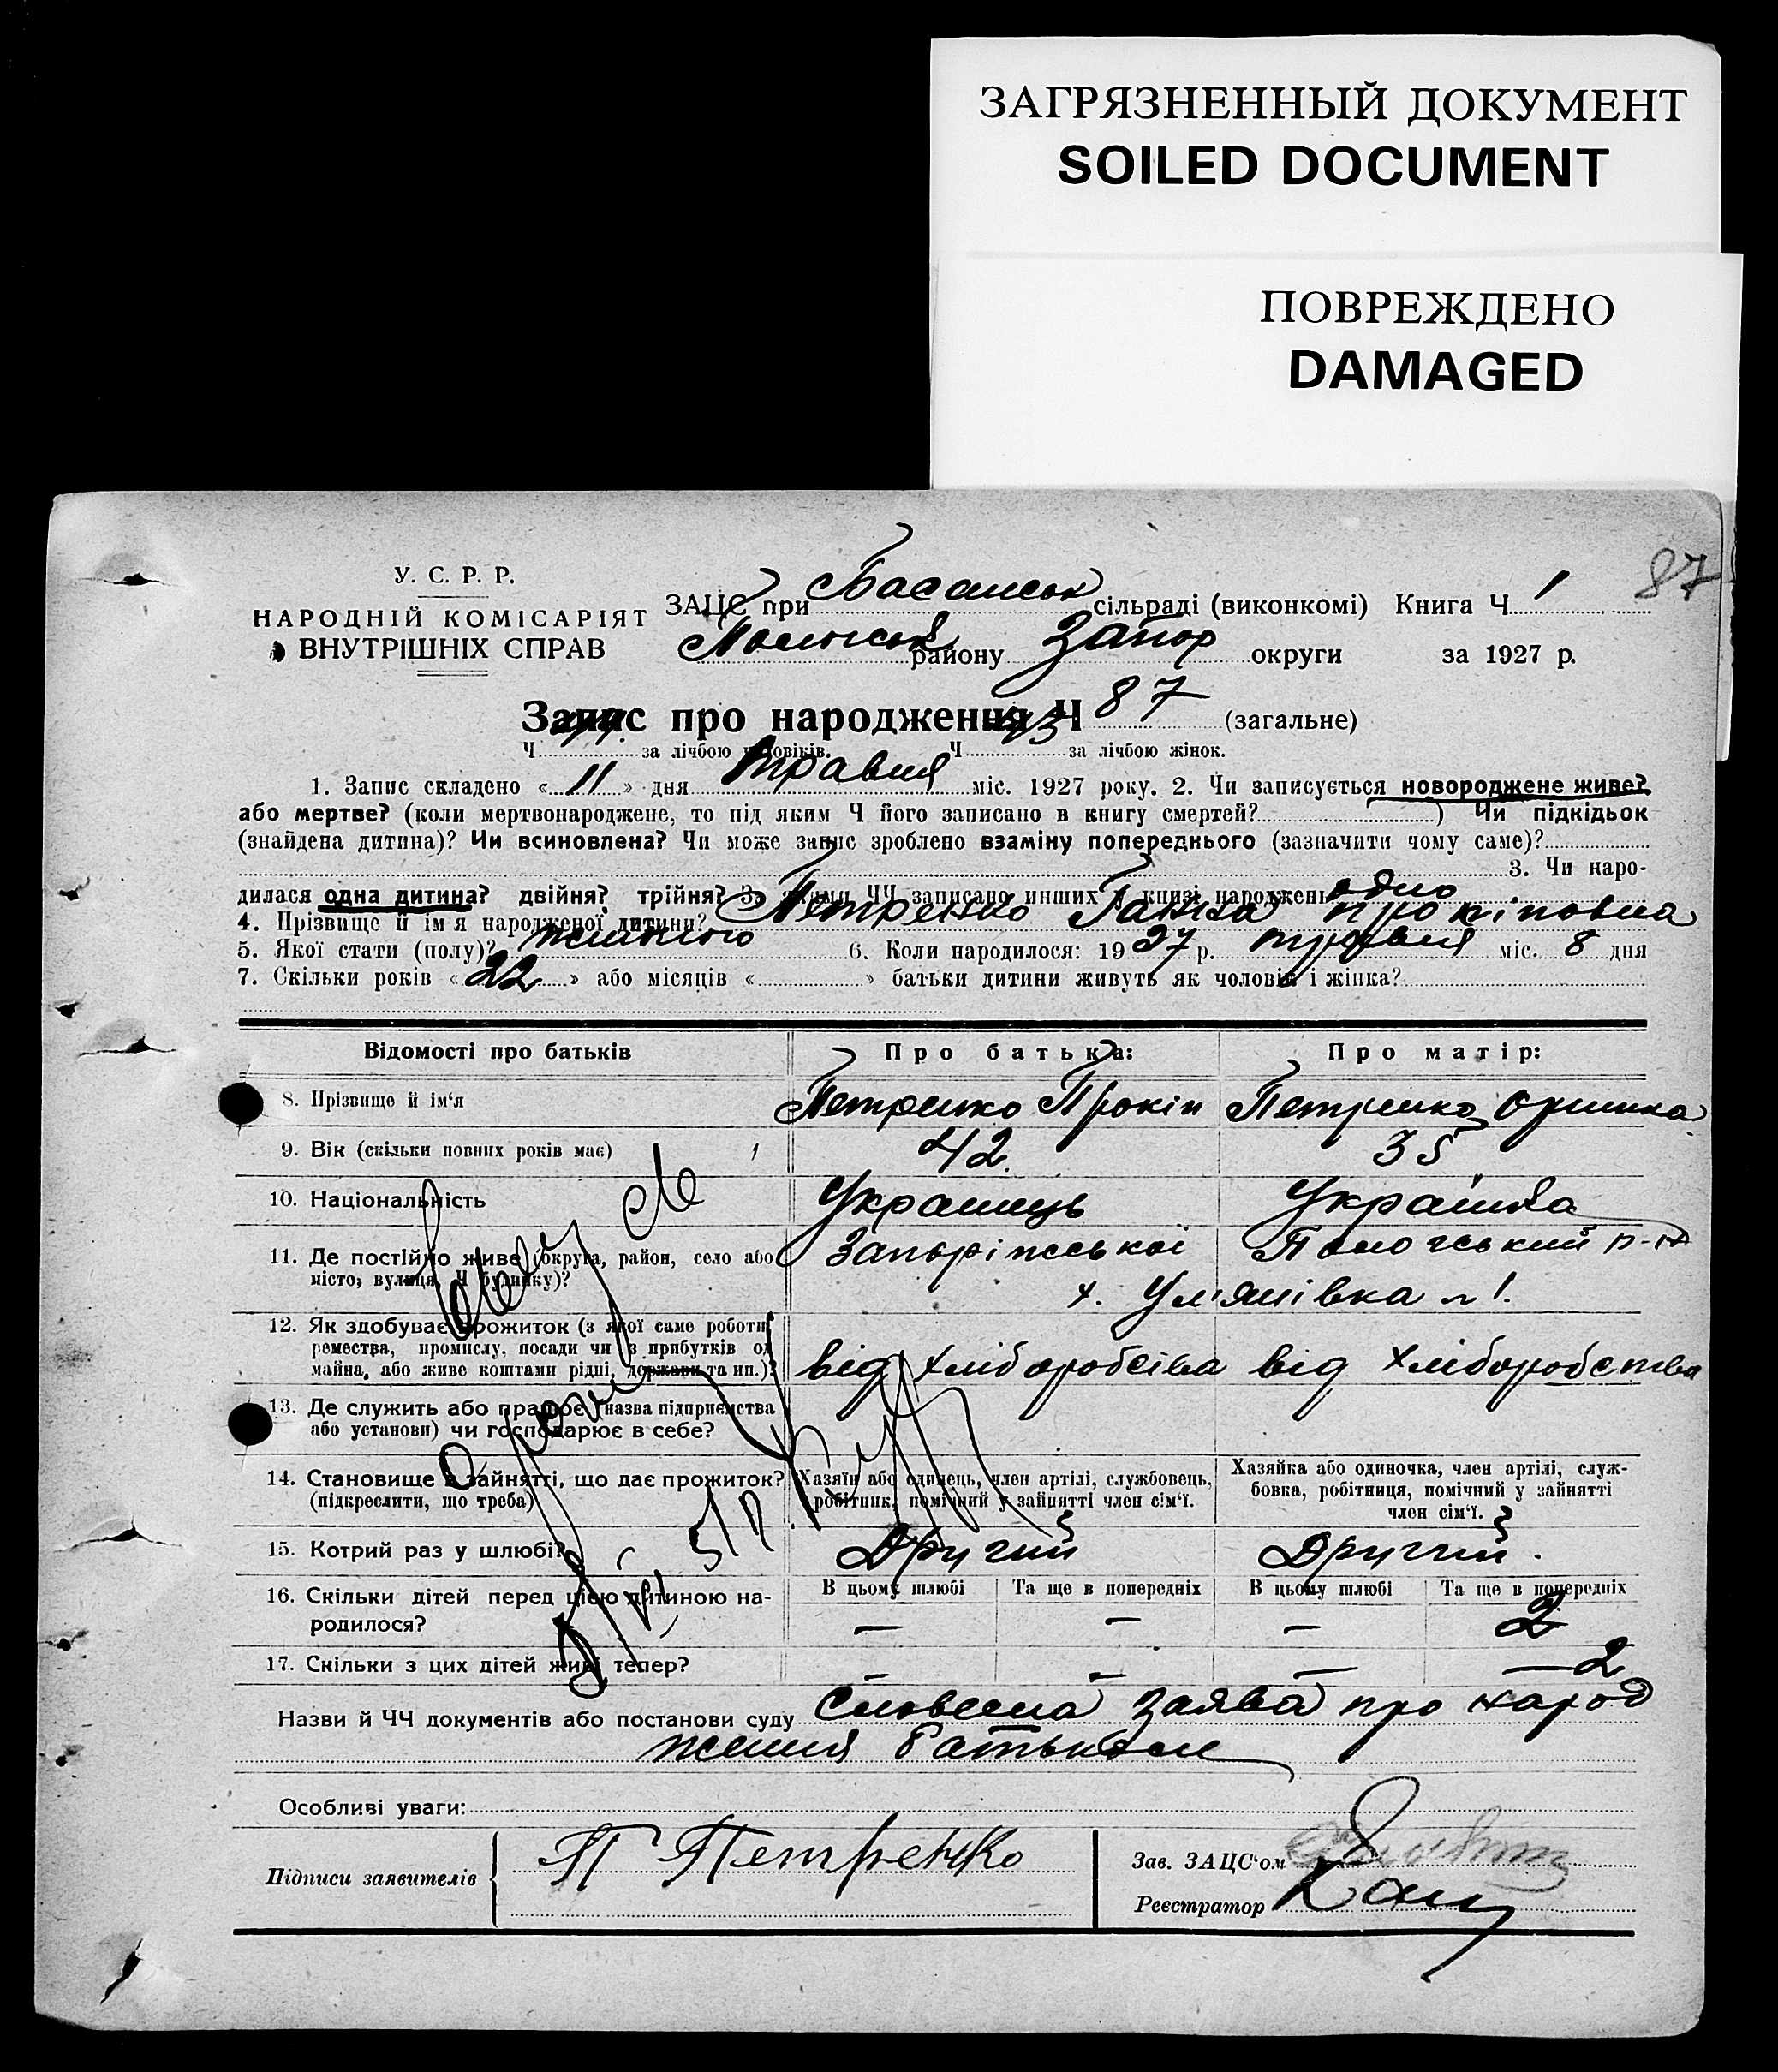 ЗАГРЯЗНЕННЫЙ ДОКУМЕНТ
SOILED DOCUMENT
ПОВРЕЖДЕНО
DAMAGED
87
У. С. Р. Р.
НАРОДНІЙ КОМІСАРІЯТ
ВНУТРІШНІХ СПРАВ
ЗАЦС при Басанськ сільраді (виконкомі) Книга Ч. 1
району Запор округи за 1927 р.
Запис про народження Ч 87 (загальне)
Ч. 44 за лічбою чоловіків. Ч. 43 за лічбою жінок.
1. Запис складено « 11 » дня травня міс. 1927 року. 2. Чи записується новороджене живе?
або мертве? (коли мертвонароджене, то під яким Ч його записано в книгу смертей? ) Чи підкідьок
(знайдена дитина)? Чи всиновлена? Чи може запис зроблено взаміну попереднього (зазначити чому саме)?
3. Чи наро-
дилася одна дитина? двійня? трійня? За якими ЧЧ записано инших у книзі народжень одно
4. Прізвище й ім'я народженої дитини? Петренко Ганна Прокіповна
5. Якої стати (полу)? жіночого 6. Коли народилося: 1927 р. травня міс. 8 дня
7. Скільки років « 22 » або місяців « » батьки дитини живуть як чоловік і жінка?
Відомості про батьків Про батька: Про матір:
8. Прізвище й ім'я Петренко Прокіп Петренко Оришка
9. Вік (скільки повних років має) 42. 35
10. Національність Українець Українка
11. Де постійно живе (округа, район, село або Запоріжської Пологський р-н
місто, вулиця, Ч будинку)? х. Улянівка № 1.
12. Як здобуває прожиток (з якої саме роботи,
ремества, промислу, посади чи з прибутків од
майна, або живе коштами рідні, держави та ин.)? від хліборобства від хліборобства
13. Де служить або працює (назва підприємства
або установи) чи господарює в себе?
14. Становище в зайнятті, що дає прожиток? Хазяїн або одинець, член артілі, службовець, Хазяйка або одиночка, член артілі, служ-
(підкреслити, що треба) робітник, помічний у зайнятті член сім'ї. бовка, робітниця, помічний у зайнятті
член сім'ї.
15. Котрий раз у шлюбі? Другий Другий.
16. Скільки дітей перед цією дитиною на- В цьому шлюбі Та ще в попередніх В цьому шлюбі Та ще в попередніх
родилося? — — — 2
17. Скільки з цих дітей живі тепер? — — — — 2
Назви й ЧЧ документів або постанови суду Словесна заява про народ
ження батьком
Особливі уваги:
Підписи заявителів П Петренко Зав. ЗАЦС'ом
Реєстратор